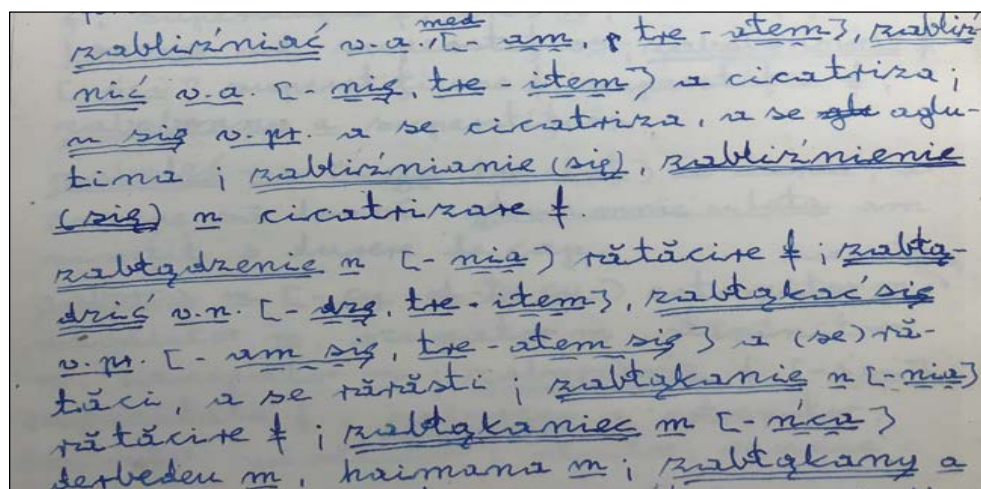 zabliźniać v.a. med [-am, tre-atem], zabliź-
nić v.a. [-nię, tre-item] a cicatriza;
~ się v.pr. a se cicatriza, a se aglu-
tina; zabliźnianie (się), zabliźnienie
(się) n cicatrizare f.
zabłądzenie n [-nia] rătăcire f; zabłą-
dzić v.n. [-dzę, tre-item], zabłąkać się
v.pr. [-am się, tre-atem się] a (se) ră-
tăci, a se răzrăsti; zabłąkanie n [-nia]
rătăcire f; zabłąkaniec m [-ńca]
derbedeu m, haimana m; zabłąkany a